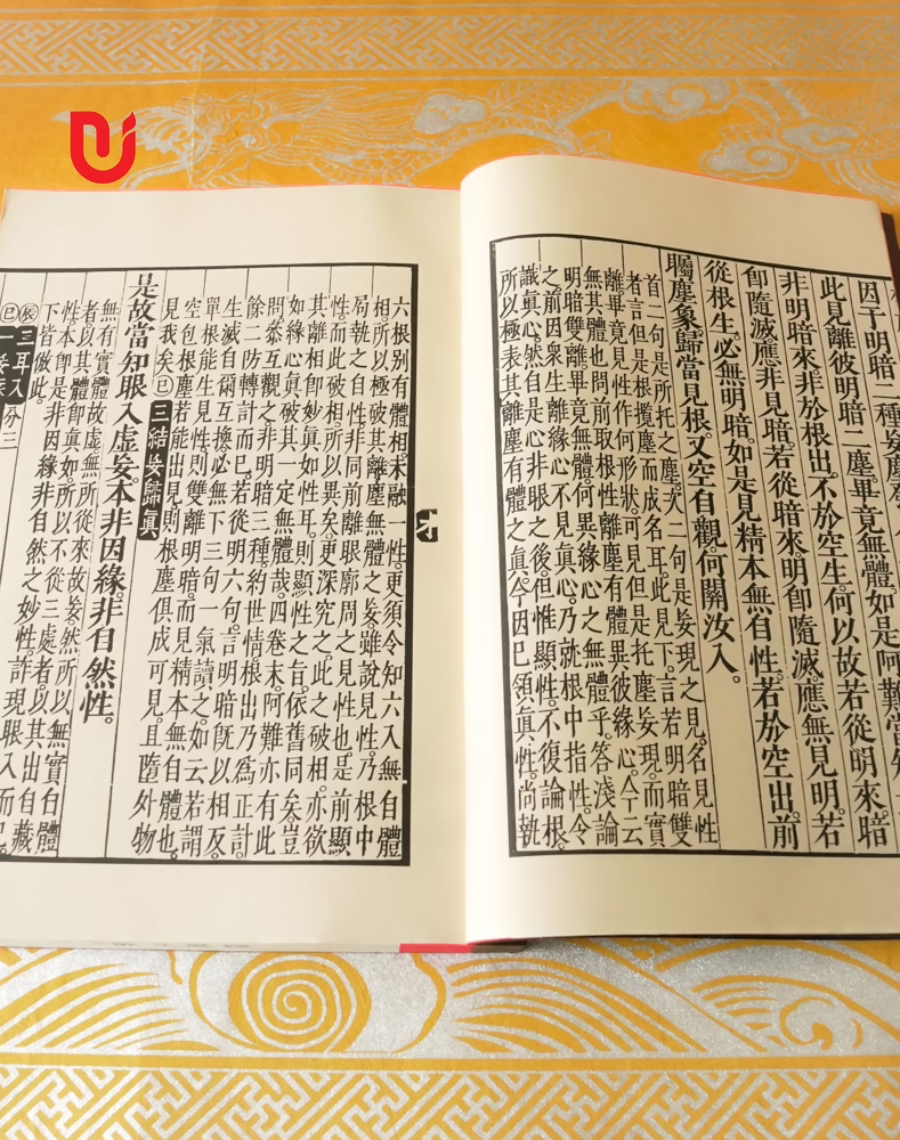 因于明暗二種妄塵
此見離彼明暗二塵。畢竟無體。如是阿難當知
非明暗來。非於根出。不於空生。何以故。若從明來。暗
卽隨滅。應非見暗。若從暗來。明卽隨滅。應無見明。若
從根生。必無明暗。如是見精本無自性。若於空出。前
矚塵象。歸當見根。又空自觀。何關汝入。
首二句。是所托之塵。次二句。是妄現之見。名見性
者。言但是根攬塵而成名耳。此見下。言若明暗雙
離。畢竟見性作何形狀。可見但是托塵妄現。而實
無其體也。問前取根性離塵有體。異彼緣心。今云
明暗雙離。畢竟無體。何異緣心之無體乎。答淺論
之前。因衆生離緣心不見眞心。乃就根中指性。今
識眞心。然自是心非眼之後。但惟顯性。不復論根。
所以極表其離塵有體之眞。今因已領眞性。尚執
六根别有體相。未融一性。更須令知六入無自體
相。所以極破其離塵無體之妄。雖說見性。乃根中
局執之自性。非同前離眼廓周之見性也。是前顯
性。而此破相。所以異矣。更深究之。此之破相。亦欲
其離相卽妙眞如性耳。則顯性之旨。依舊同矣。豈
如緣心眞破其一定無體哉。四卷末。阿難亦有此
問。叅互觀之。非明暗三種。約世情。根出乃爲正計。
餘二防轉計而已。若從明六句。言明暗旣以相反。
生滅自爾互換。必無下三句。一氣讀之。如云若謂
單根能生見性。則雙離明暗。而見精本無自體也。
空包根塵。若能出見。則根塵俱成可見。且隨外物
見我矣。巳三結妄歸眞
是故當知。眼入虛妄。本非因緣。非自然性。
無有實體故虛。無所從來故妄。然所以無實自體
者。以其體卽眞如。所以不從三處者。以其出自藏
性。本卽是非因緣非自然之妙性。許現眼入而已。
下皆倣此。
辰三耳入分三
巳一妄